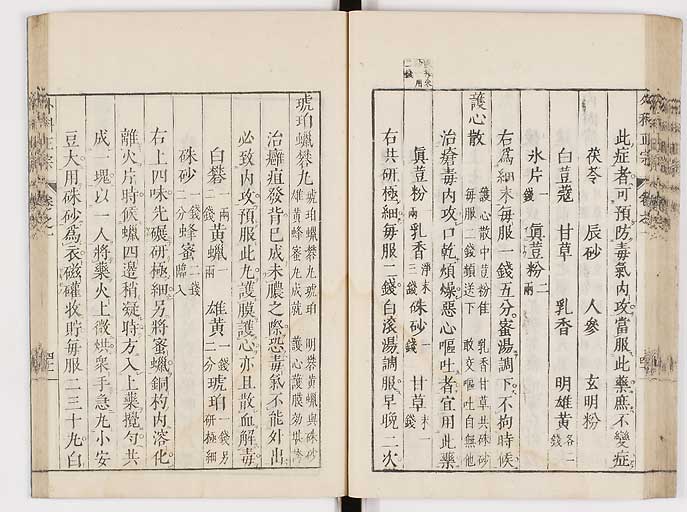 此症者可預防毒氣内攻當服此藥庶不變症
茯苓　辰砂　人參　玄明粉
白豆蔻　甘草　乳香　明雄黄各二錢
氷片一錢　眞荳粉二兩
右爲細末毎服一錢五分蜜湯調下不拘時候
護心散　護心散中荳粉佳　乳香甘草共硃砂　毎服二錢頻送下　敢交嘔吐自無他
治瘡毒内攻口乾煩燥惡心嘔吐者宜用此藥
眞荳粉一兩　乳香淨末三錢　硃砂一錢　甘草末一錢
右共研極細毎服二錢白滚湯調服早晩二次
琥珀蠟礬丸　琥珀蠟礬丸琥珀　明礬黄蠟與硃砂　雄黄蜂蜜丸成就　護心護膜効堪
治癰疽發背已成未膿之際恐毒氣不能外出
必致内攻預服此丸護膜護心亦且散血解毒
白礬一兩二錢　黄蠟一兩　雄黄一錢二分　琥珀一錢另研極細
硃砂一錢二分　蜂蜜二錢臨入
右上四味先碾研極細另將蜜蠟銅杓内溶化
離火片時候蠟四邊稍凝時方入上藥攪匀共
成一塊以一人將藥火上微烘衆手急丸小安
豆大用硃砂爲衣磁礶收貯毎服二三十丸白
外科正宗
卷之一